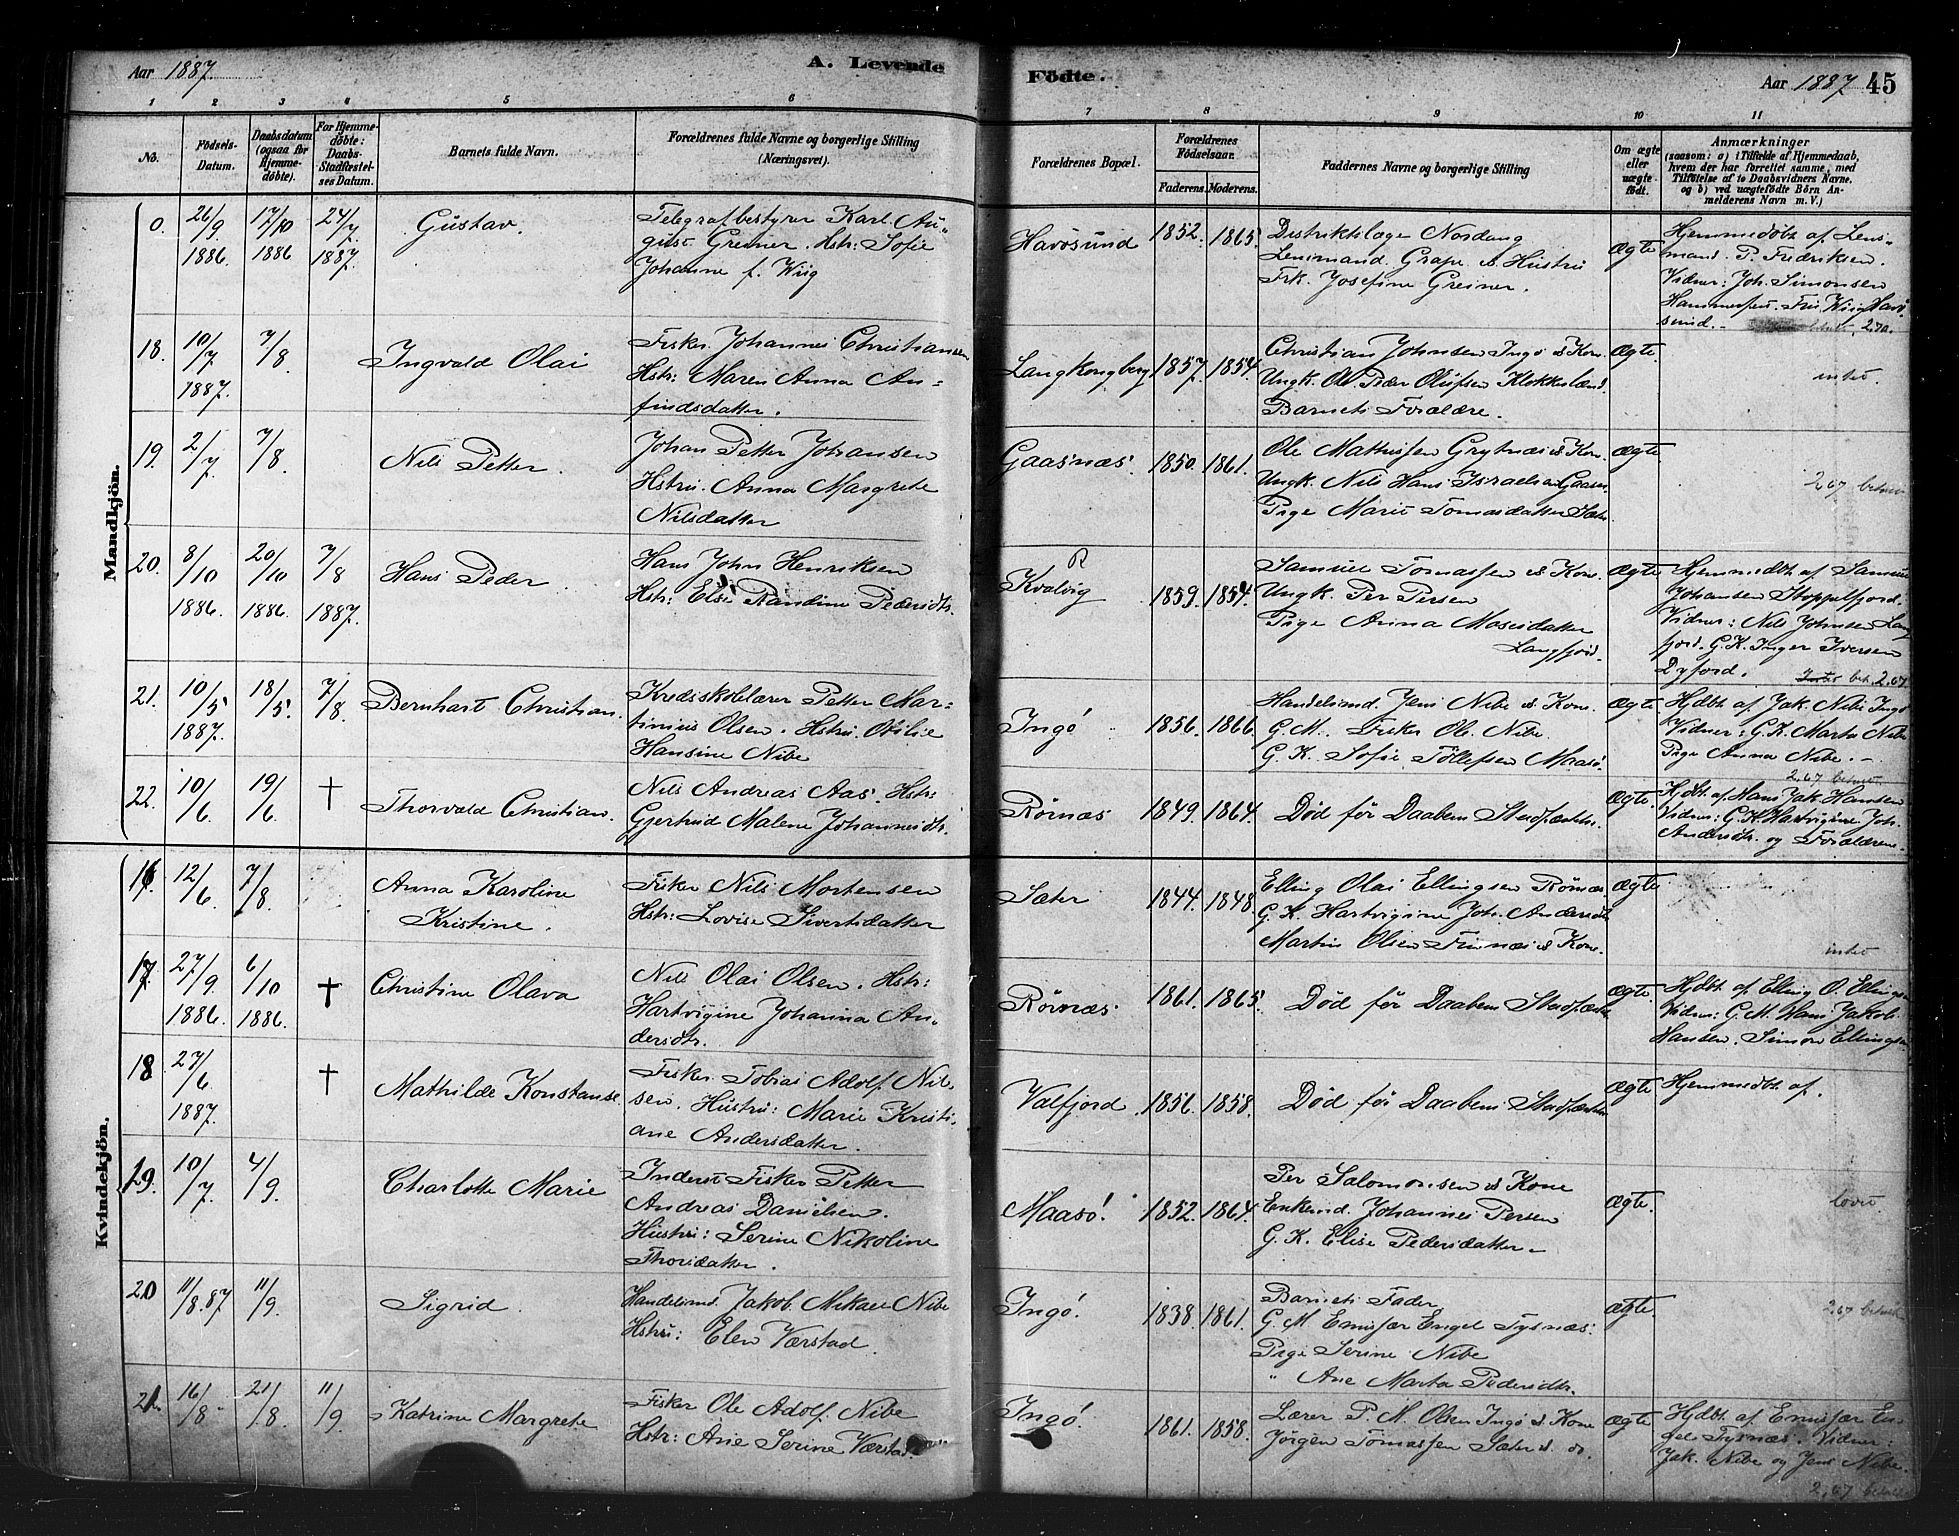 Aar 1887.
A. Levende
Födte.
Aar 1887
45
1 2 3 4 5 6 7 8 9 10 11
No.
Födsels-
Datum.
Daabsdatum
(ogsaa for
Hjemme-
döbte).
For Hjemme-
döbte:
Daabs-
Stadfæstel-
ses Datum.
Barnets fulde Navn.
Forældrenes fulde Navne og borgerlige Stilling
(Næringsvei).
Forældrenes Bopæl.
Forældrenes
Födselsaar.
Faderens. Moderens.
Faddernes Navne og borgerlige Stilling
Om ægte
eller
uægte
födt.
Anmærkninger
(saasom: a) i Tilfælde af Hjemmedaab,
hvem der har forrettet samme, med
Tilföielse af to Daabsvidners Navne.
og b) ved uægtefödte Börn An-
melderens Navn m. V.)
Mandkjön.
0.
26/9
1886.
17/10
1886
24/7
1887.
Gustav.
Telegrafbestyrer Karl Au-
gust Greiner. Hstr: Sofie
Johanne f. Wiig
Havösund
1852. 1865.
Distriktslæge Nordang
Lensmand. Grape & Hustru
Frk. Josefine Greiner.
Ægte
Hjemmedöbt af Lens-
mand. P. Fredriksen.
Vidner: Joh. Simonsen
Hammerfest Fru Wiig Havö
sund.
18.
10/7
1887.
7/8
Ingvald Olai
Fisker Johannes Christiansen
Hstr: Maren Anna An-
findsdatter.
Langkongberg
1857. 1854.
Christian Johnsen Ingö & Kone.
Ungk. Ole Peder Olufsen Klokkeland
Barnets Forældre.
Ægte.
intet.
19.
2/7
7/8.
Nils Petter.
Johan Petter Johansen
Hstru. Anna Margrete
Nilsdatter
Gaasnæs.
1850. 1861.
Ole Mathissen Grytnæs & Kone.
Ungk. Nils Hans Israelsen Gaasn.
Pige Marie Tomasdatter Sæter
ægte.
2.67 betalt
20.
8/10
1886.
20/10
1886.
7/8
1887.
Hans Peder
Hans John Henriksen
Hstr: Else Randine Pedersdtr.
R
Kvalvig
1859. 1854.
Samuel Tomassen & Kone.
Ungk. Per Persen
Pige Anna Mosesdatter
Langfjord.
ægte
Hjemmedöbt. af Samuel
Johansen Stoppelfjord.
Vidner: Nils Johnsen Lang
fjord. G.K. Inger Iversen
Dyfjord. bet. 2.67
21.
10/5
1887.
18/5.
7/8
Bernhart Christian.
Kredsskolelærer Petter Mar-
tinius Olsen. Hstru. Otilie
Hansine Nibe
Ingö
1856. 1866
Handelsmd. Jens Nibe & Kone.
G.M. Fisker Ole Nibe.
G.K. Sofie Tollefsen Maasö.
ægte
Hjdbt af Jak. Nibe Ingö
Vidner: G.K. Marta Nibe
Pige Anna Nibe. -
2.67 betalt
22.
10/6
19/6
†
Thorvald Christian.
Nils Andreas Aas. Hstr:
Gjertrud Malene Johannesdtr.
Rörnæs
1849. 1864.
Död för Daabens Stadfæstelse.
Ægte
Hjdbt. af Hans Jak. Hansen
Vidner: G.K. Hartvigine Joh.
Andersdtr. og Forældrene.
Kvindekjön.
16.
12/6
7/8.
Anna Karoline
Kristine.
Fisker Nils Mortensen
Hstr: Lovise Sivertsdatter
Sæter
1844. 1848.
Elling Olai Ellingsen Rörnæs
G.K. Hartvigine Joh. Andersdtr
Martin Olsen Finnæs & Kone.
Ægte
intet
17.
27/9
1886.
6/10
1886.
†
Christine Olava
Nils Olai Olsen. Hstr:
Hartvigine Johanna An-
dersdtr.
Rörnæs
1861. 1865.
Död för Daabens Stadfæstelse
ægte.
Hjdbt. af Elling O. Ellingsen
Vidner: G.M. Hans Jakob
Hansen. Simon Ellingsen
18
27/6
1887.
†
Mathilde Konstanse
Fisker Tobias Adolf Nil-
sen. Hustru: Marie Kristi-
ane Andersdatter.
Valfjord.
1856. 1858.
Död för Daabens Stadfæstelse
ægte.
Hjemmedbt. af.
19.
10/7
4/9.
Charlotte Marie
Inderst Fisker Petter
Andreas Danielsen.
Hustru: Serine Nikoline
Thorsdatter.
Maasö.
1852. 1864.
Per Salomonsen & Kone
Enkemd. Johannes Persen
G.K. Elise Pedersdatter.
ægte.
lovet.
20
11/8.87
11/9.
Sigrid.
Handelsmd. Jakob Mikael Nibe
Hstru: Elen Værstad.
Ingö.
1838. 1861.
Barnets Fader,
G.M. Emisfær Engel Tysnæs.
Pige Serine Nibe
" Ane Marta Pedersdtr.
ægte.
2.67 betalt
21.
16/8
21/8.
11/9
Katrine Margrete
Fisker Ole Adolf Nibe
Hstr: Ane Serine Værstad.
Ingö.
1861. 1858.
Lærer P.M. Olsen Ingö & Kone
Jörgen Tomassen Sæter & do
ægte
Hjdbt. af Emisfær En-
gel Tysnæs. Vidner:
Jak. Nibe og Jens Nibe.
2.67 betalt